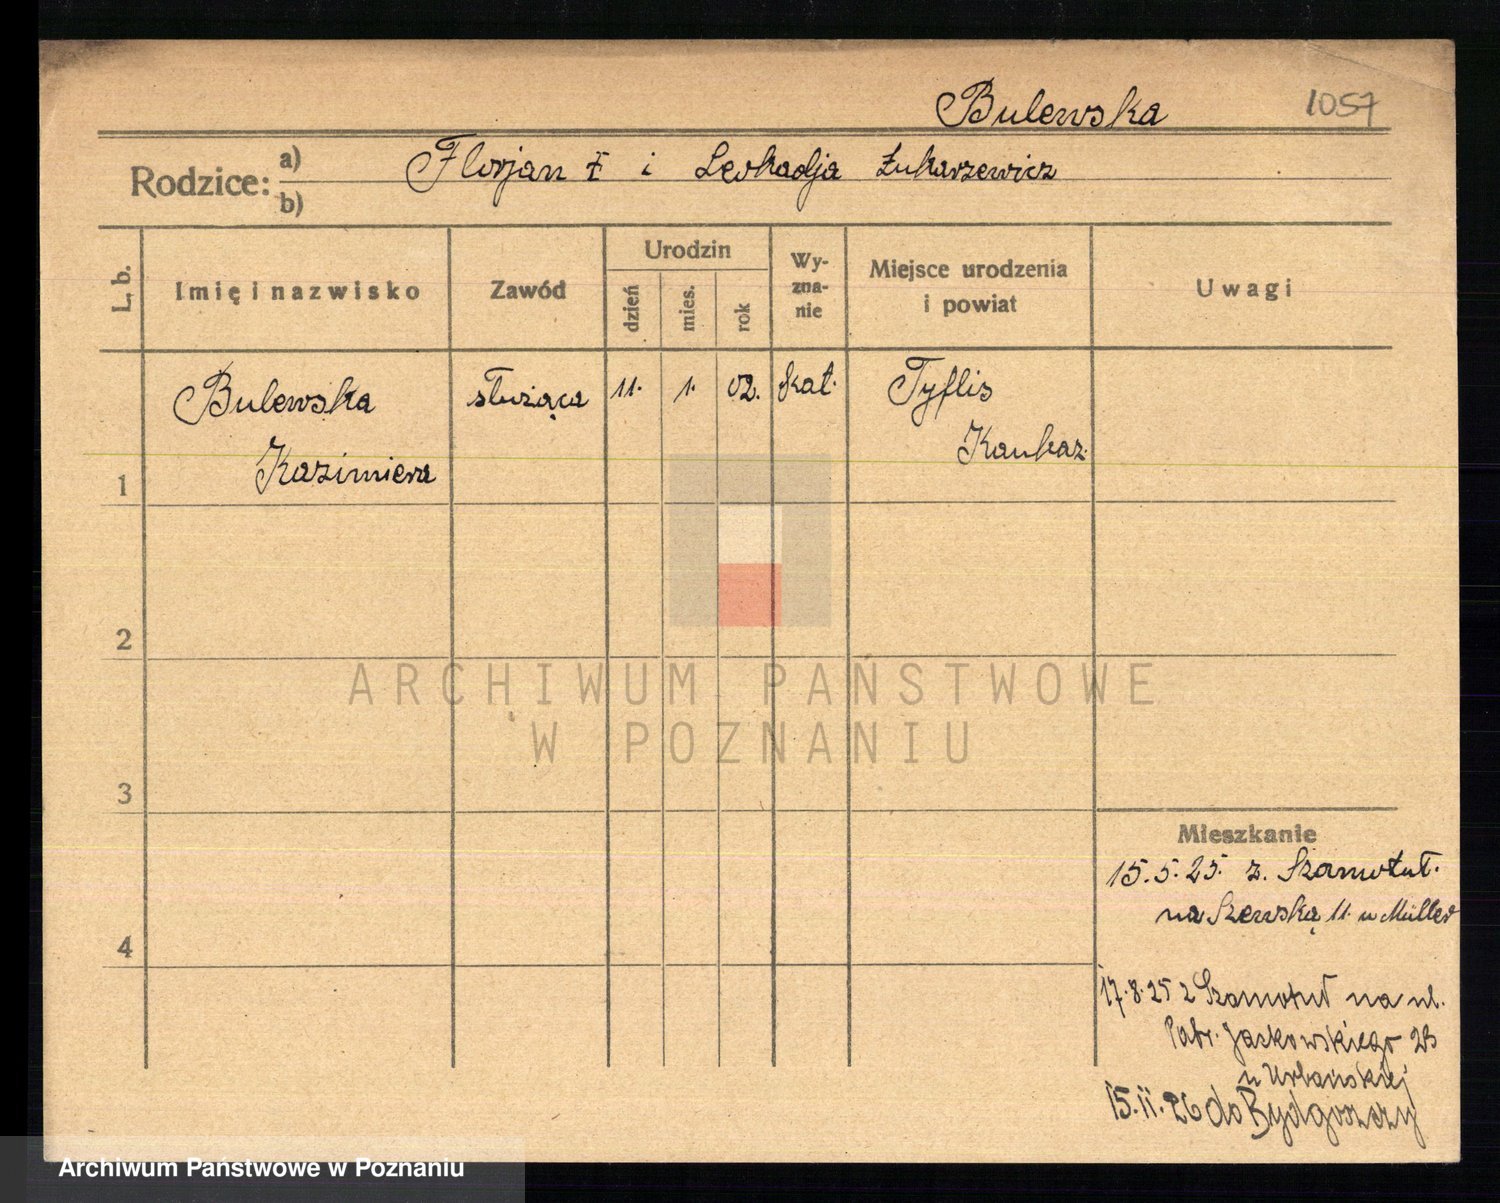 Bulewska 1057
Rodzice: a) Florjan i Leokadja Łukarzewicz
b)
L. b. Imię i nazwisko Zawód Urodzin dzień mies. rok Wy-
zna-
nie Miejsce urodzenia
i powiat Uwagi
Bulewska służąca 11. 1. 02. kat. Tyflis
Kaukaz
1 Kazimiera
2
ARCHIWUM PAŃSTWOWE
W POZNANIU
3
Mieszkanie
15.5.25. z. Szamotuł.
na Szewską 11. u Müller
4
17.8.25 z Szamotuł na ul.
Jaskowskiego
u Urbańskiej
15.11.26 do Bydgoszczy
Archiwum Państwowe w Poznaniu